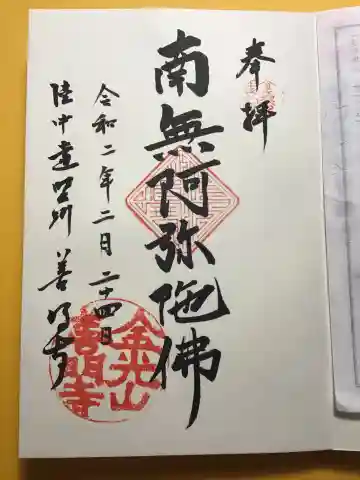 奉拝
南無阿弥陀佛
令和二年二月二十四日
陸中遠野郷 善明寺
金光山
善明寺